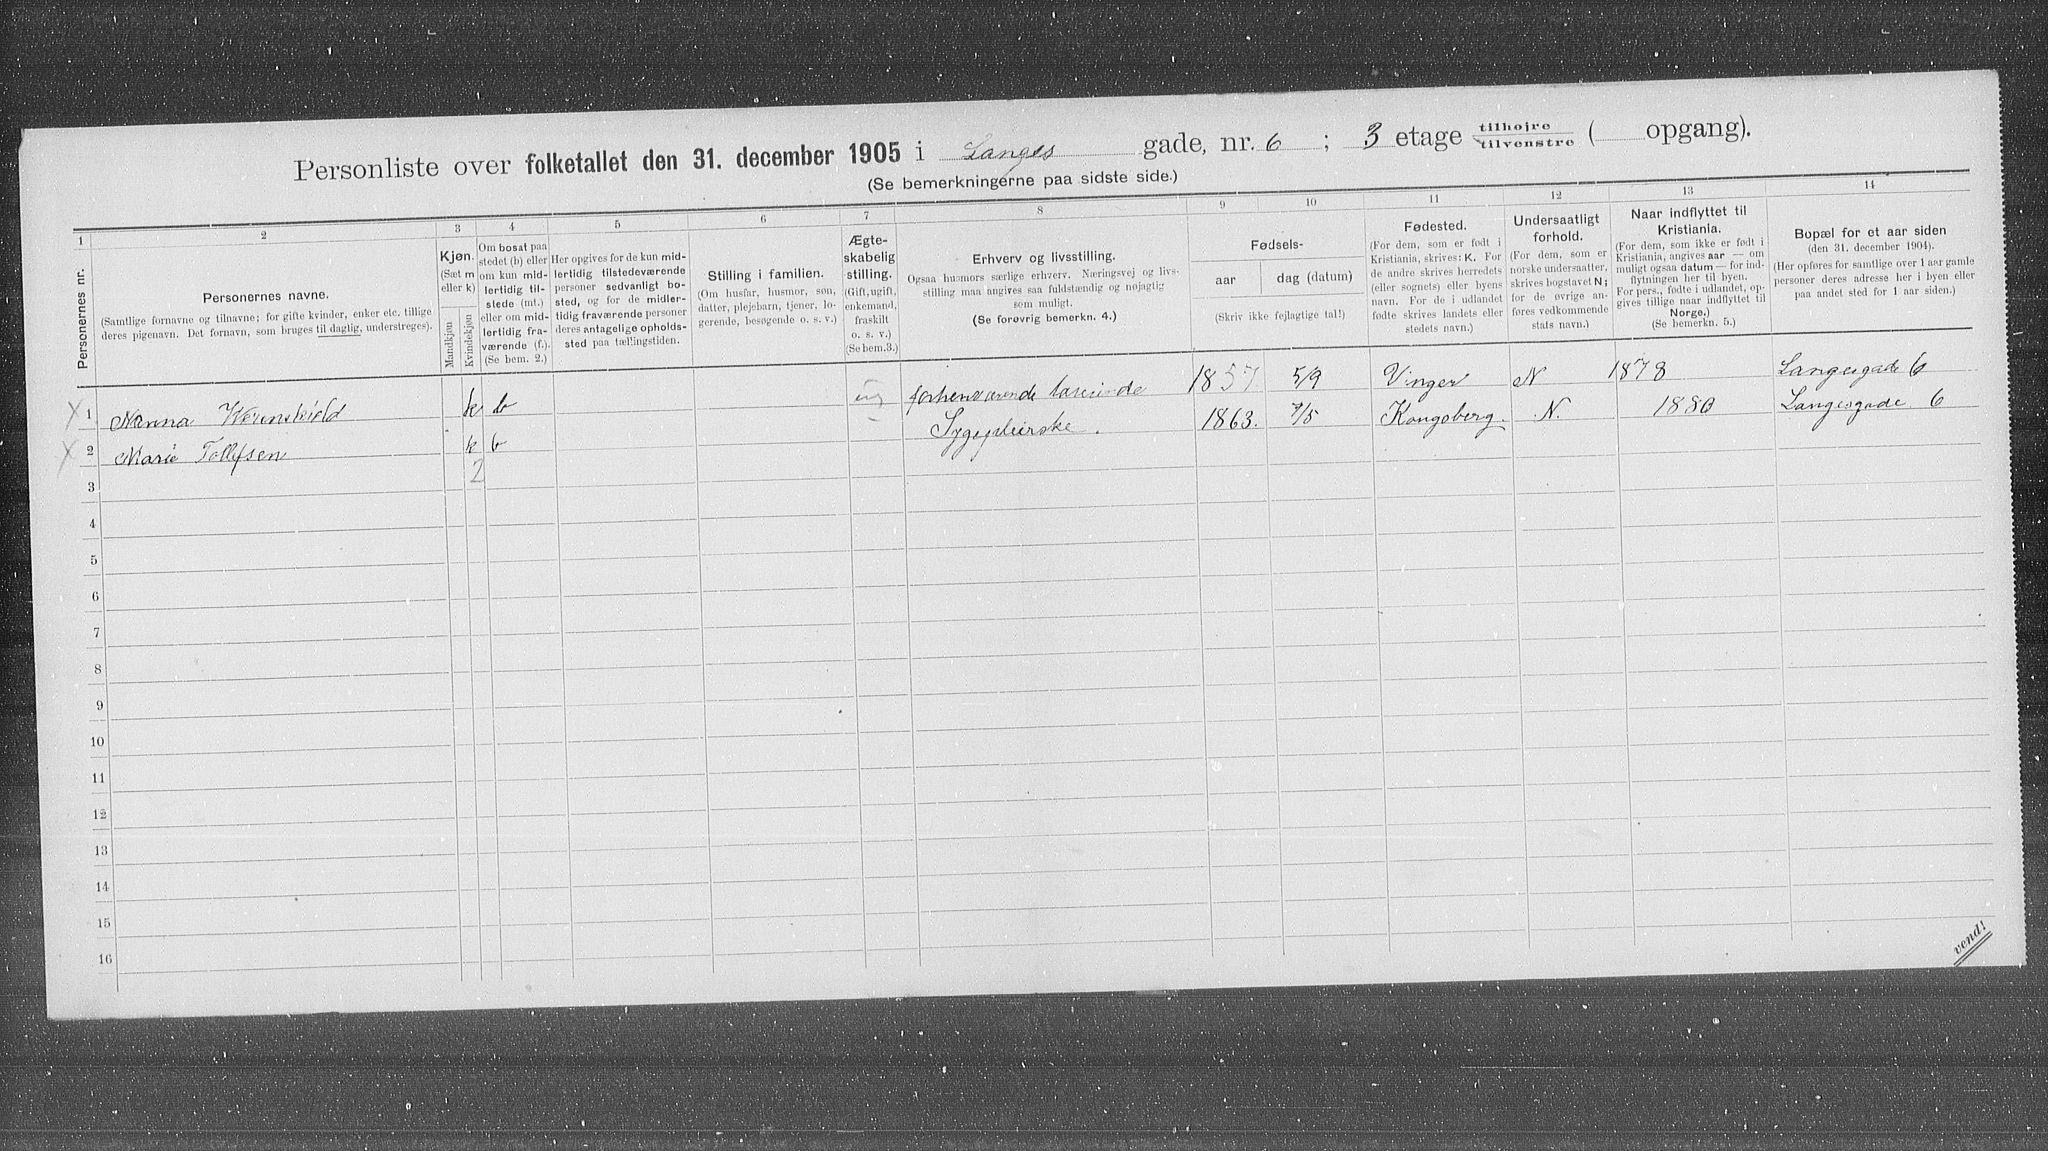 Personliste over folketallet den 31. december 1905 i Langes gade, nr. 6 ; 3 etage tilhøjre / tilvenstre ( opgang).
(Se bemerkningerne paa sidste side.)
1 2 3 4 5 6 7 8 9 10 11 12 13 14
Personernes nr.
Personernes navne.
(Samtlige fornavne og tilnavne; for gifte kvinder, enker etc. tillige
deres pigenavn. Det fornavn, som bruges til daglig, understreges).
Kjøn.
(Sæt m
eller k)
Mandkjøn
Kvindekjøn
Om bosat paa
stedet (b) eller
om kun mid-
lertidig til-
stede (mt.)
eller om mid-
lertidig fra-
værende (f.).
(Se bem. 2.)
Her opgives for de kun mid-
lertidig tilstedeværende
personer sedvanligt bo-
sted, og for de midler-
tidig fraværende personer
deres antagelige opholds-
sted paa tællingstiden.
Stilling i familien.
(Om husfar, husmor, søn,
datter, plejebarn, tjener, lo-
gerende, besøgende o. s. v.)
Ægte-
skabelig
stilling.
(Gift, ugift,
enkemand,
fraskilt
o. s. v.)
(Se bem.3.)
Erhverv og livsstilling.
Ogsaa husmors særlige erhverv. Næringsvej og livs-
stilling maa angives saa fuldstændig og nøjagtig
som muligt.
(Se forøvrig bemerkn. 4.)
Fødsels-
aar
dag (datum)
(Skriv ikke fejlagtige tal!)
Fødested.
(For dem, som er født i
Kristiania, skrives: K. For
de andre skrives herredets
(eller sognets) eller byens
navn. For de i udlandet
fødte skrives landets eller
stedets navn.)
Undersaatligt
forhold.
(For dem, som er
norske undersaatter,
skrives bogstavet N;
for de øvrige an-
føres vedkommende
stats navn.)
Naar indflyttet til
Kristiania.
(For dem, som ikke er født i
Kristiania, angives aar — om
muligt ogsaa datum — for ind-
flytningen her til byen.
For pers., fødte i udlandet, op-
gives tillige naar indflyttet til
Norge.)
(Se bemerkn. 5.)
Bopæl for et aar siden
(den 31. december 1904).
(Her opføres for samtlige over 1 aar gamle
personer deres adresse her i byen eller
paa andet sted for 1 aar siden.)
1 Nanna Werenskiold k b ug forhenværende lærerinde 1857 5/9 Vinger N 1878 Langesgade 6
2 Marie Tollefsen k b Sygepleierske. 1863. 7/5 Kongsberg. N. 1880 Langesgade 6
2
3
4
5
6
7
8
9
10
11
12
13
14
15
16
vend!